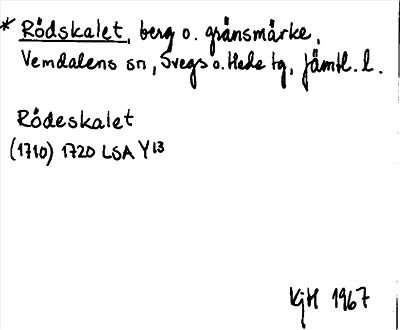 * Rödskalet, berg o. gränsmärke,
Vemdalens sn, Svegs o. Hede tg, Jämtl. l.
Rödeskalet
(1710) 1720 LSA Y13
KjH 1967